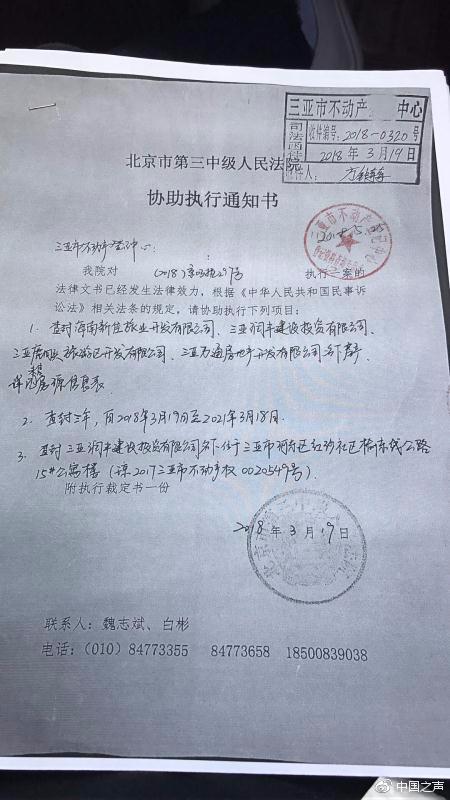 三亚市不动产 中心
司法函件
收件编号: 2018-0320号
2018年3月19日
收件人:
北京市第三中级人民法院
协助执行通知书
三亚市不动产登记中心:
我院对 (2018)京03执29号 执行一案的
法律文书已经发生法律效力,根据《中华人民共和国民事诉
讼法》相关法条的规定,请协助执行下列项目:
1. 查封海南新佳旅业开发有限公司、三亚润丰建设投资有限公司、
旅游区开发有限公司、三亚万通房地产开发有限公司名下房产
详见房源信息表
2. 查封三年,自2018年3月19日至2021年3月18日.
3. 查封三亚润丰建设投资有限公司名下位于三亚市河东区红沙社区榆东线公路
15#公寓楼(琼2017三亚市不动产权0020549号).
附执行裁定书一份
2018年3月19日
联系人: 魏志斌、白彬
电话: (010) 84773355 84773658 18500839038
中国之声